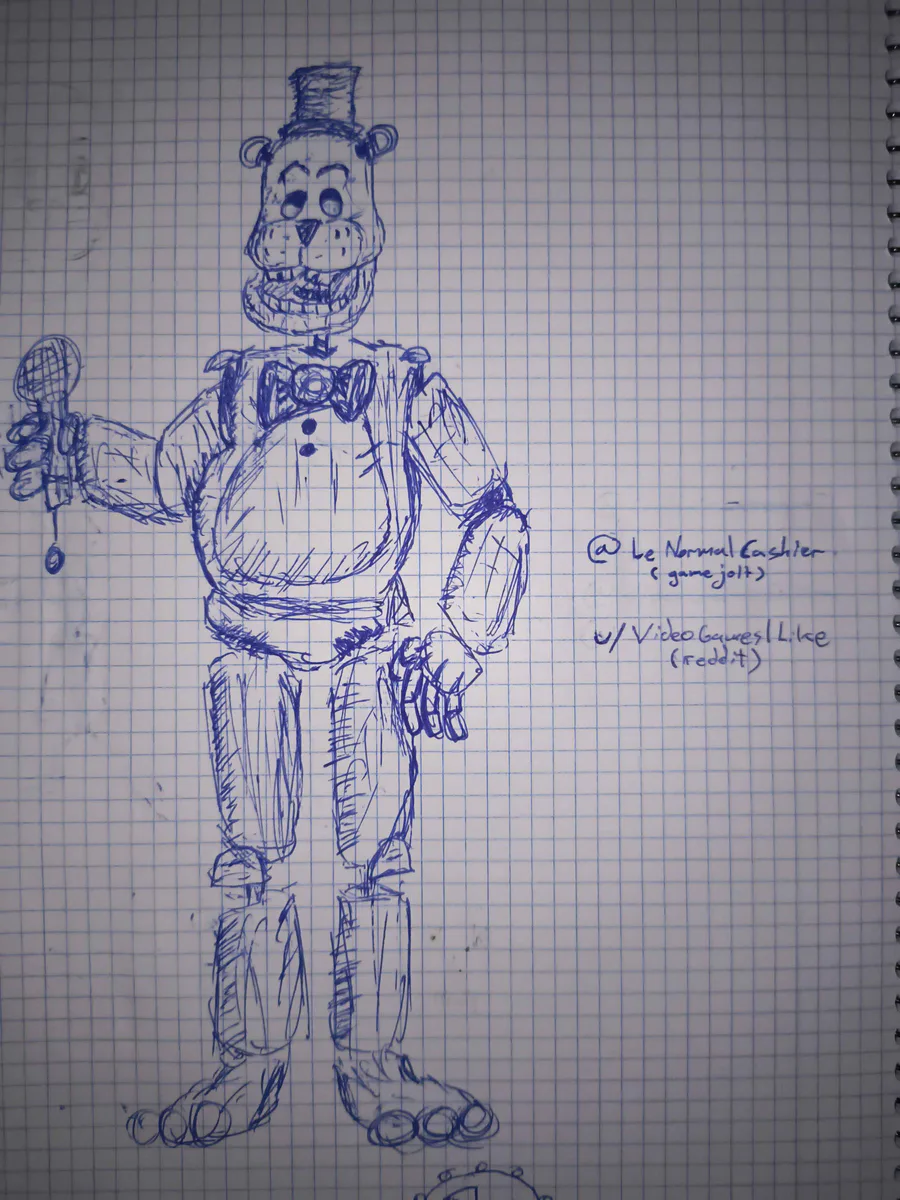 @ Le Normal Cashier
(gamejolt)
u/VideoGamesILike
(reddit)